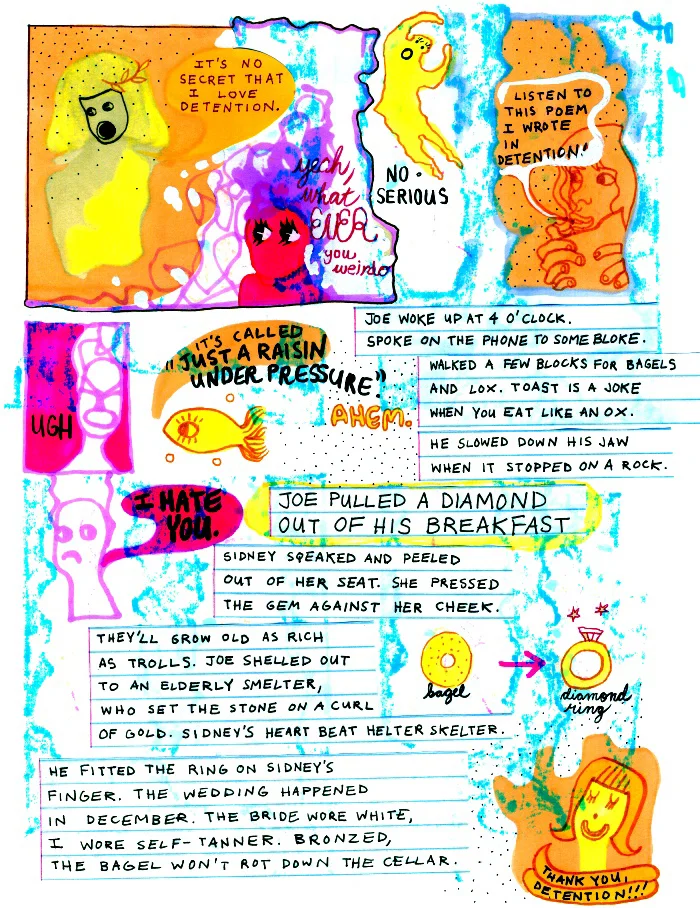 IT'S NO
SECRET THAT
I LOVE
DETENTION.
yeah,
what
EVER
you
weirdo
NO.
SERIOUS
LISTEN TO
THIS POEM
I WROTE
IN
DETENTION!
UGH
IT'S CALLED
"JUST A RAISIN
UNDER PRESSURE".
AHEM.
JOE WOKE UP AT 4 O'CLOCK.
SPOKE ON THE PHONE TO SOME BLOKE.
WALKED A FEW BLOCKS FOR BAGELS
AND LOX. TOAST IS A JOKE
WHEN YOU EAT LIKE AN OX.
HE SLOWED DOWN HIS JAW
WHEN IT STOPPED ON A ROCK.
I HATE
YOU.
JOE PULLED A DIAMOND
OUT OF HIS BREAKFAST
SIDNEY SQEAKED AND PEELED
OUT OF HER SEAT. SHE PRESSED
THE GEM AGAINST HER CHEEK.
THEY'LL GROW OLD AS RICH
AS TROLLS. JOE SHELLED OUT
TO AN ELDERLY SMELTER,
WHO SET THE STONE ON A CURL
OF GOLD. SIDNEY'S HEART BEAT HELTER SKELTER.
bagel
diamond
ring
HE FITTED THE RING ON SIDNEY'S
FINGER. THE WEDDING HAPPENED
IN DECEMBER. THE BRIDE WORE WHITE,
I WORE SELF-TANNER. BRONZED,
THE BAGEL WON'T ROT DOWN THE CELLAR.
THANK YOU,
DETENTION!!!